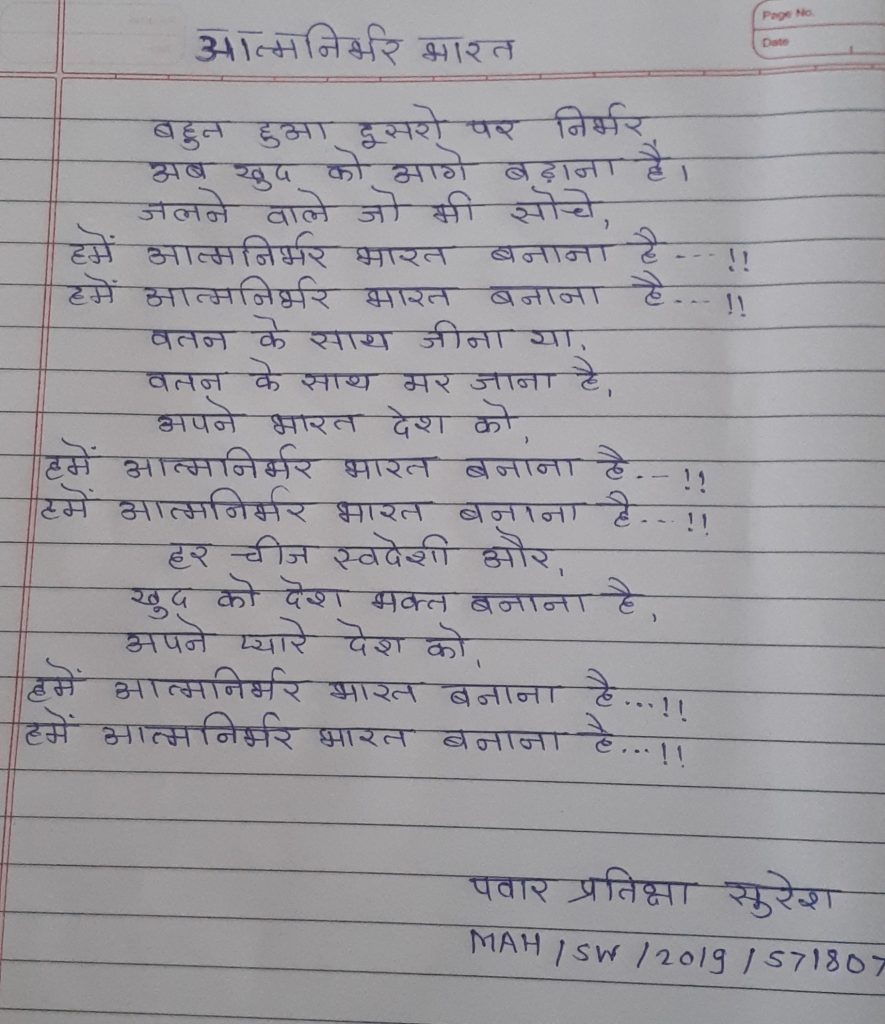 Page No.
Date
आत्मनिर्भर भारत
बहुत हुआ दूसरो पर निर्भर,
अब खुद को आगे बढ़ाना है।
जलने वाले जो भी सोचे,
हमें आत्मनिर्भर भारत बनाना है---!!
हमें आत्मनिर्भर भारत बनाना है---!!
वतन के साथ जीना या,
वतन के साथ मर जाना है,
अपने भारत देश को,
हमें आत्मनिर्भर भारत बनाना है..--!!
हमें आत्मनिर्भर भारत बनाना है...--!!
हर चीज स्वदेशी और,
खुद को देश भक्त बनाना है,
अपने प्यारे देश को,
हमें आत्मनिर्भर भारत बनाना है...!!
हमें आत्मनिर्भर भारत बनाना है...!!
पवार प्रतिक्षा सुरेश
MAH/SW/2019/571807